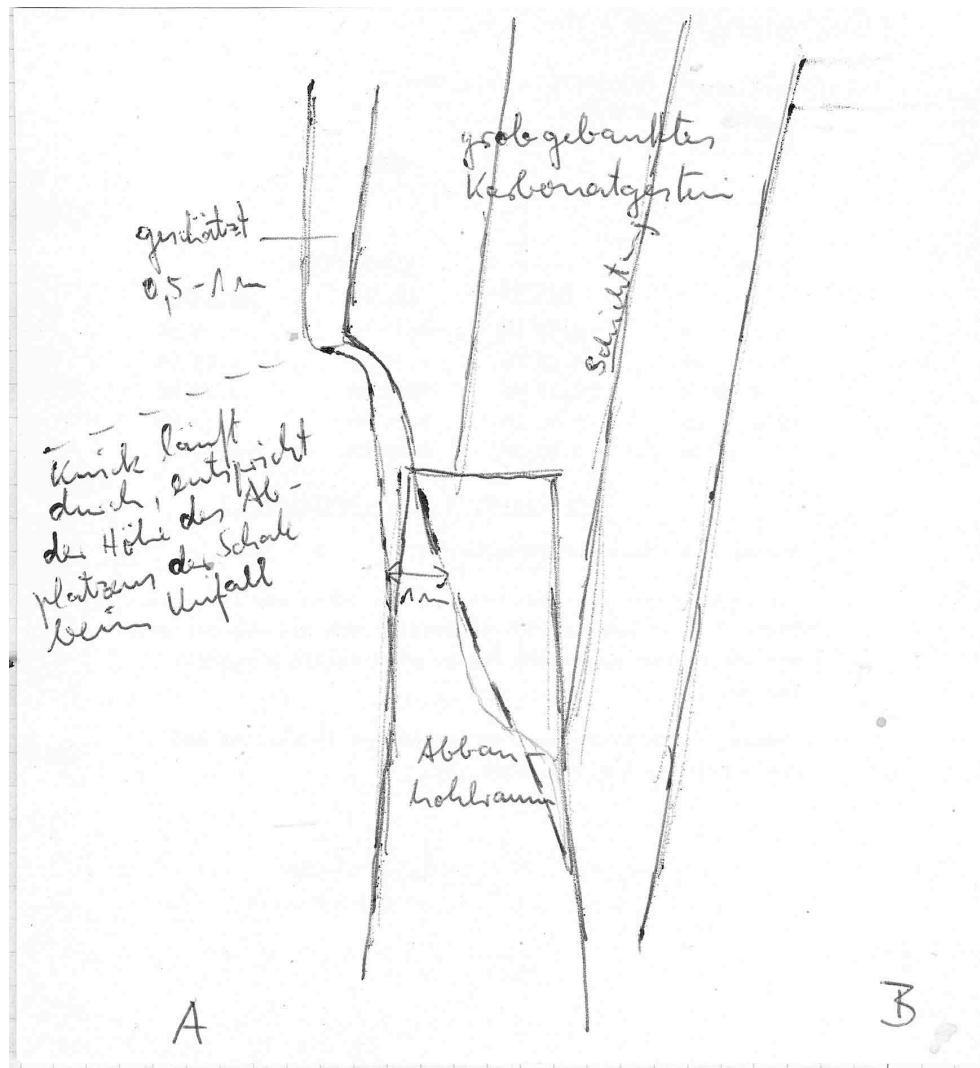 grobgebanktes
Karbonatgestein
geschätzt
0,5-1 m
Schichtung
Knick läuft
durch, entspricht
der Höhe des Ab-
platzens der Schale
beim Unfall
1 m
Abbau-
hohlraum
A
B